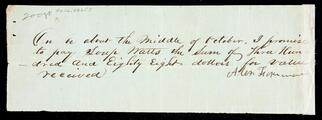 On or about the Middle of October, I promise
to pay Watts the Sum of Three Hun
dred and Eighty Eight dollars for value
received